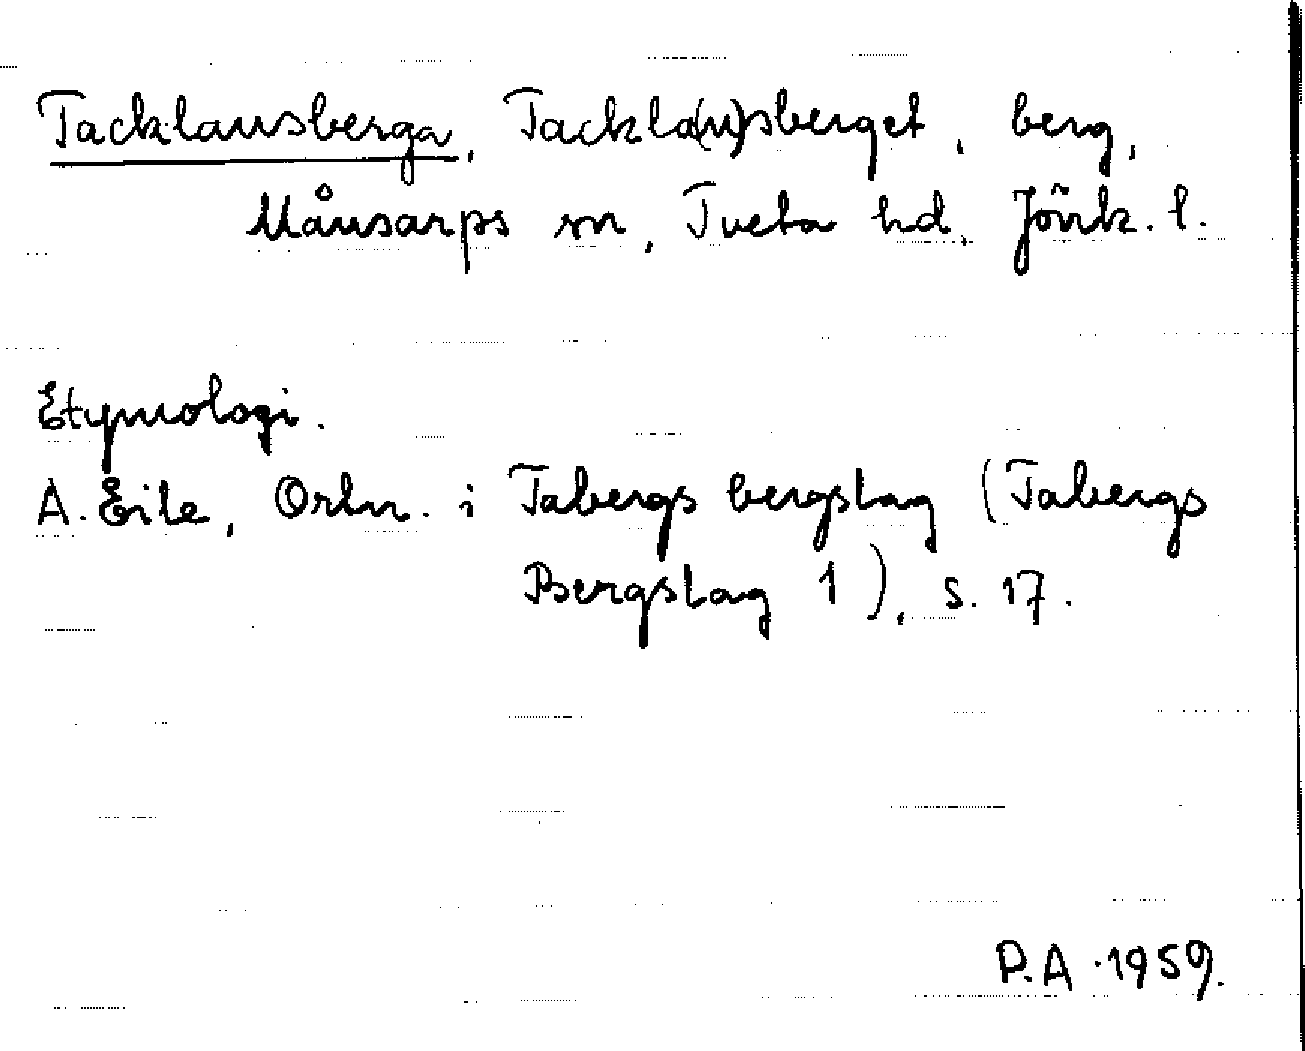 Tacklansberga, Tackla(n)sberget, berg,
Månsarps sn, Tveta hd, Jönk. l.
Etymologi.
A. Eite, Ortn. i Tabergs bergslag (Tabergs
Bergslag 1), s. 17.
P.A. 1959.